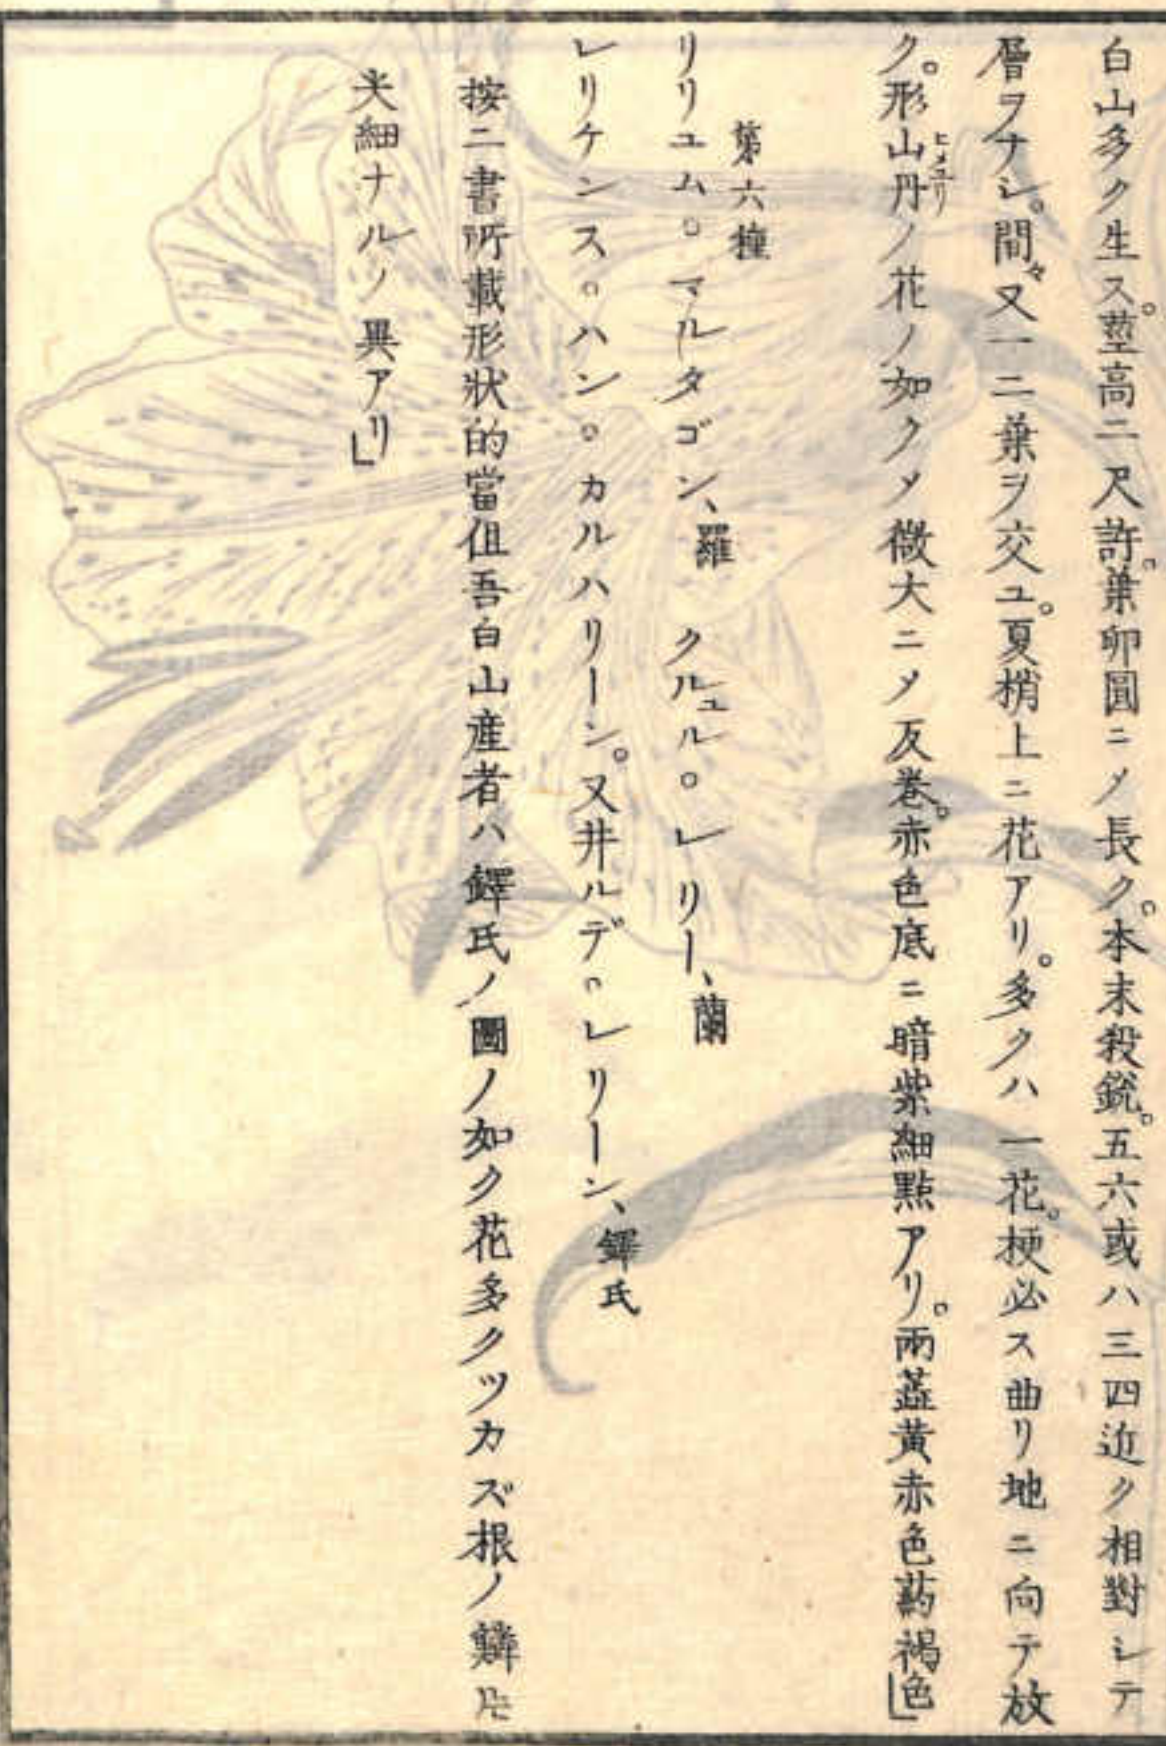 白山多ク生ス。莖高二尺許。葉卵圓ニメ長ク。本末殺鋭。五六或ハ三四近ク相對シテ
層ヲナシ。間々又一二葉ヲ交ユ。夏梢上ニ花アリ。多クハ一花。梗必ス曲リ地ニ向テ放
ク。形山丹ノ花ノ如クメ微大ニメ反巻。赤色底ニ暗紫細點アリ。兩蕋黄赤色葯褐色」
ヒメユリ
第六種
リリユム。マルタゴン、羅 クルュル。レリー、蘭
レリケンス。ハン。カルハリーン。又井ルデ。レリーン、鐸氏
按二書所載形状的當但吾白山産者ハ鐸氏ノ圖ノ如ク花多クツカズ根ノ鱗片
尖細ナルノ異アリ」